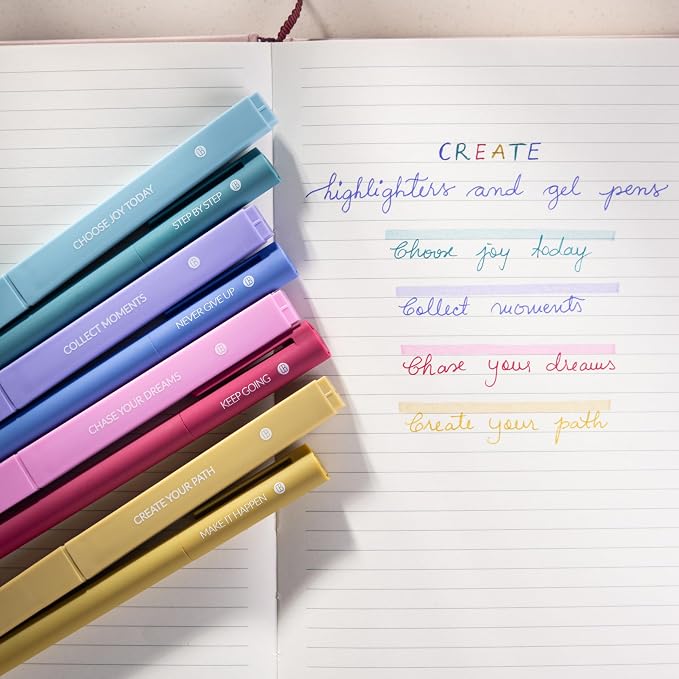 CHOOSE JOY TODAY
STEP BY STEP
COLLECT MOMENTS
NEVER GIVE UP
CHASE YOUR DREAMS
KEEP GOING
CREATE YOUR PATH
MAKE IT HAPPEN
CREATE
highlighters and gel pens
Choose joy today
Collect moments
Chase your dreams
Create your path